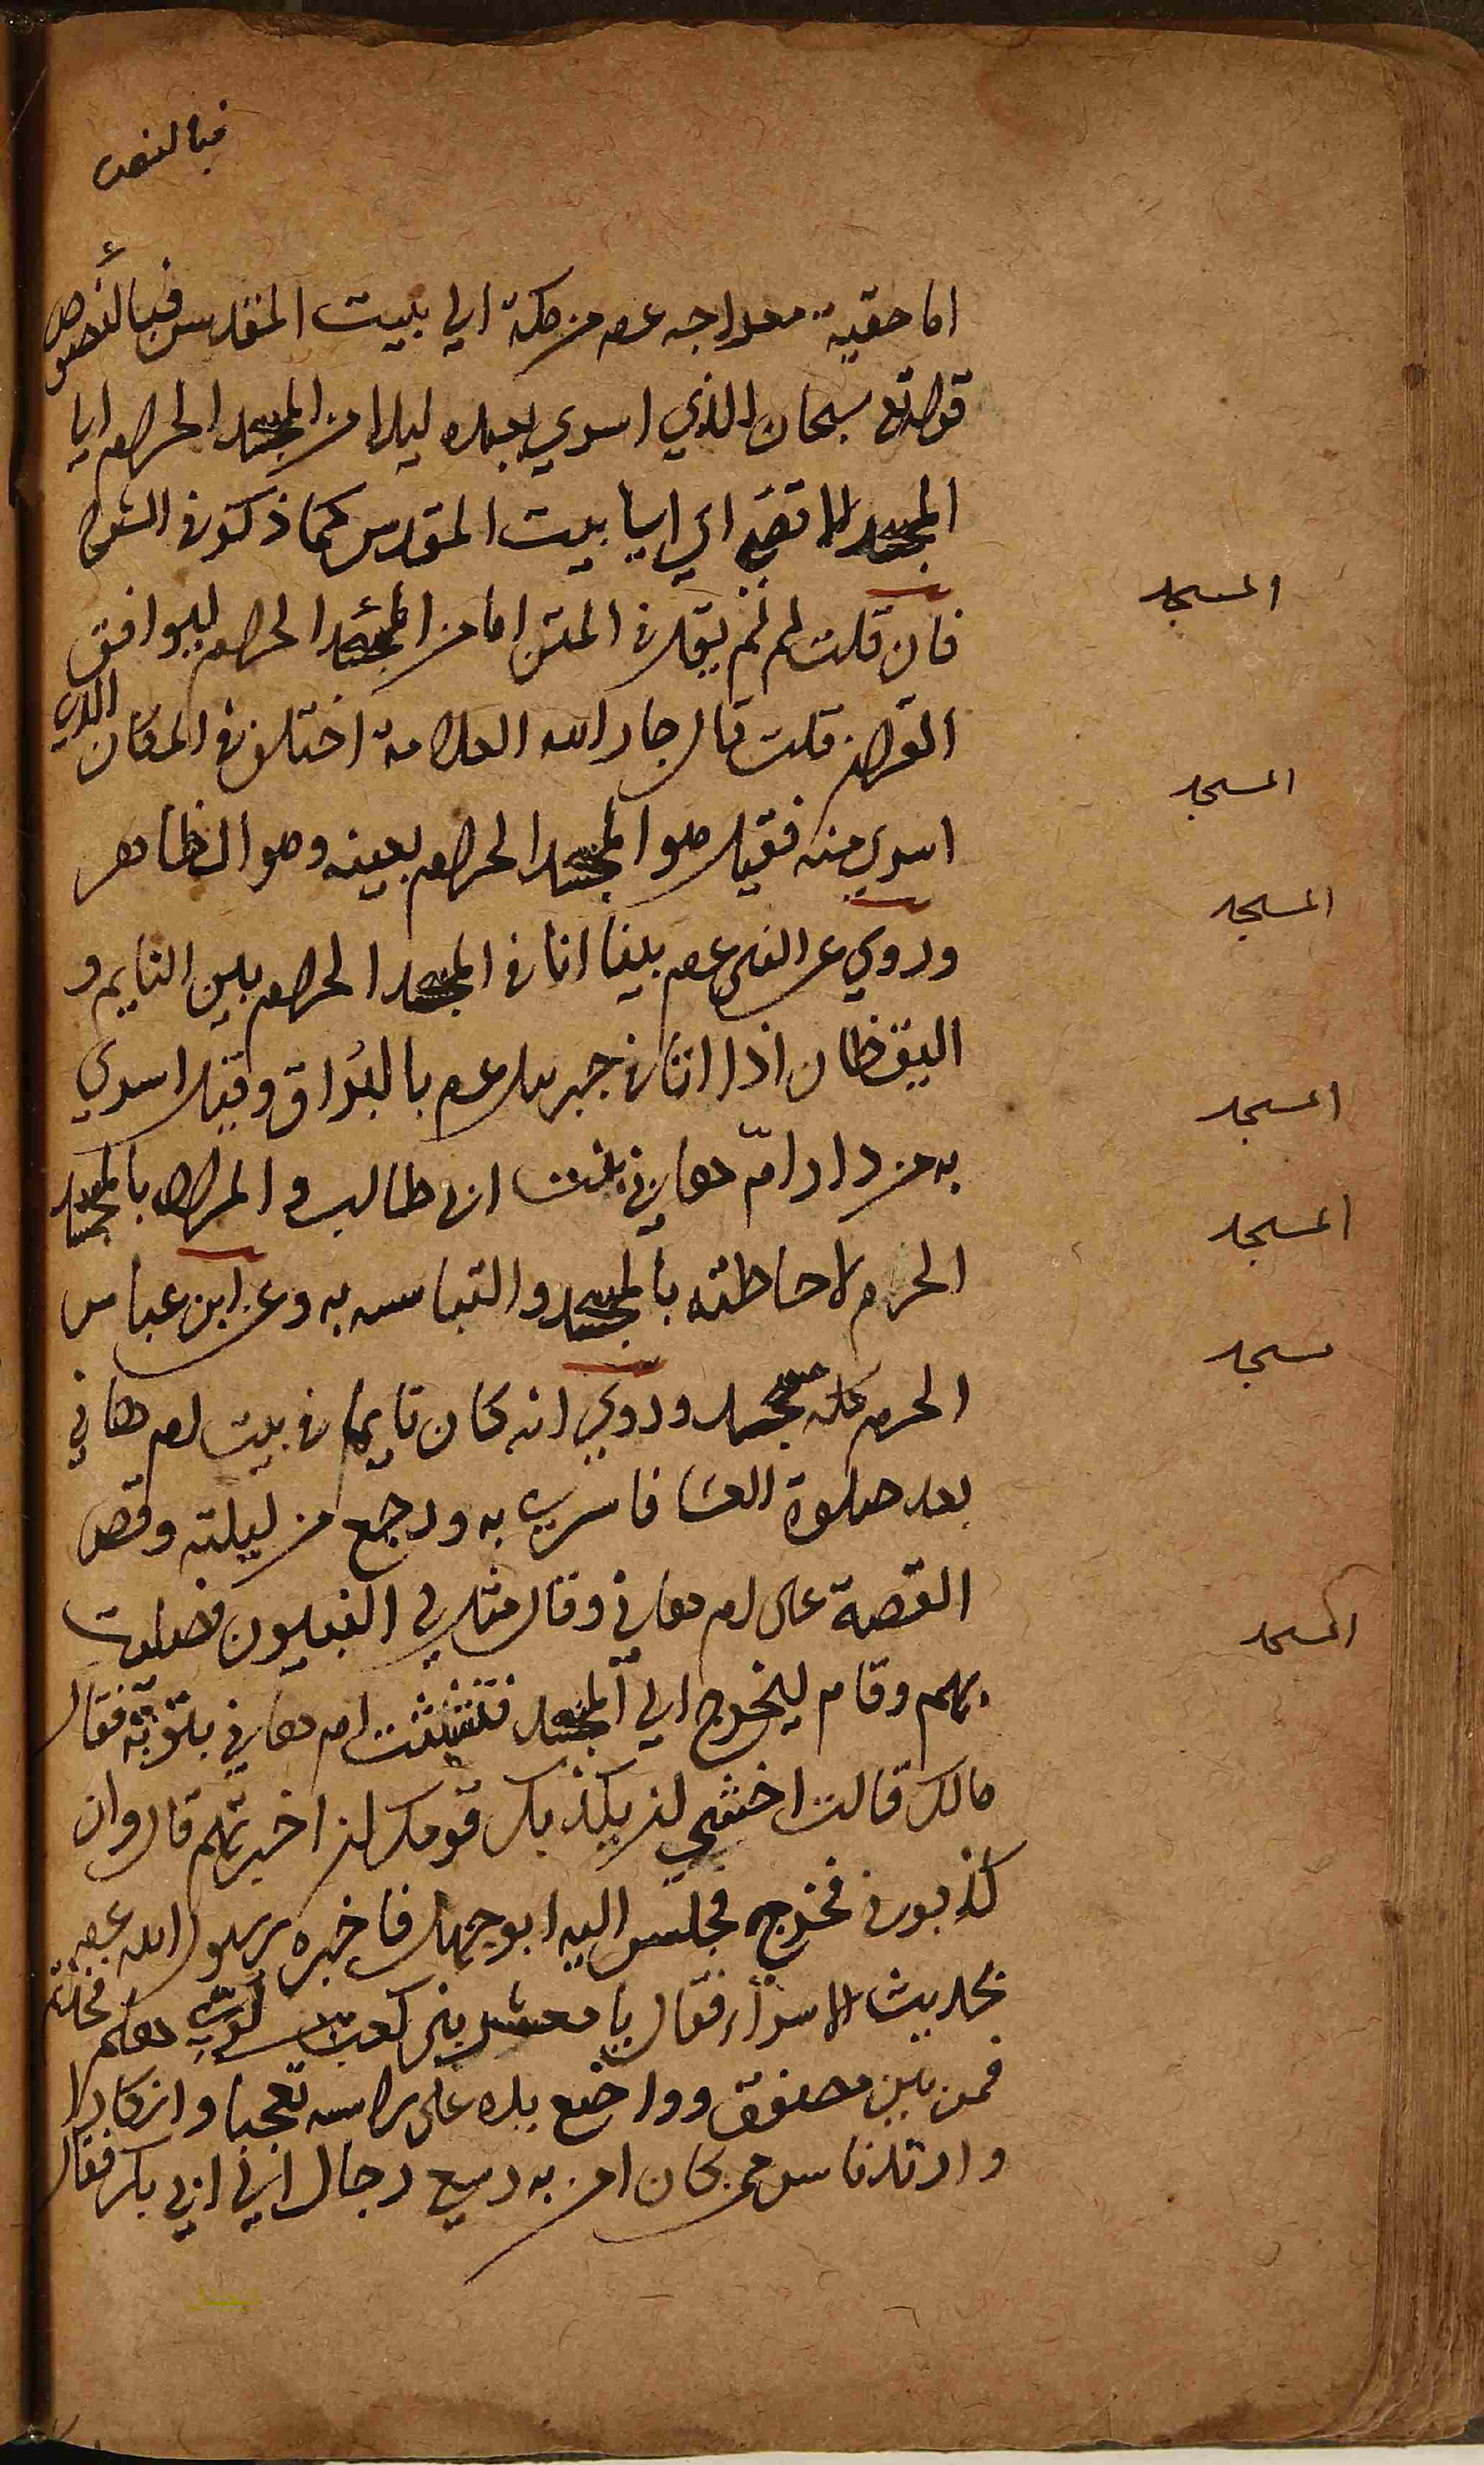 فبالنص
اما حقية معراجه عم من مكة الي بيت المقدس فبالنصوص
قوله تع سبحان الذي اسري بعبده ليلا من المجسد الحرام الي
المجسد الاقصي اي الي بيت المقدس كما ذكر في الشرح
فان قلت لم لم يقل في المتن اما من المجسد الحرام ليوافق
القران قلت قال جار الله العلامة اختلف في المكان الذي
اسري منه فقيل هو المجسد الحرام بعينه وهو الظاهر
وروي عن النبي عم بينا انا في المجسد الحرام بين النايم و
اليقظان اذا اتاني جبريل عم بالبُراق وقيل اسري
به من دار امّ هاني بنت ابي طالب والمراد بالمجسد
الحرم لاحاطته بالمجسد والتباسه به وعن ابن عباس
الحرم كله مجسد وروي انه كان نايما في بيت ام هاني
بعد صلوة العشا فاسري به ورجع من ليلته وقص
القصة على ام هاني وقال مثل لي النبيون فصليت
بهم وقام ليخرج الي المجسد فتشبثت ام هاني بثوبه فقال
مالك قالت اخشي ان يكذبك قومك ان اخبرتهم قال وان
كذبوني فخرج فجلس اليه ابو جهل فاخبره رسول الله عم
بحديث الاسراء فقال يا معشر بني كعب لويّ هلم فحدثهم
فمن بين مصفق وواضع يده على راسه تعجبا وانكارا
وارتد ناس ممن كان امن به وسع رجال الي ابي بكر فقال
المسجد
المسجد
المسجد
المسجد
المسجد
مسجد
المسجد